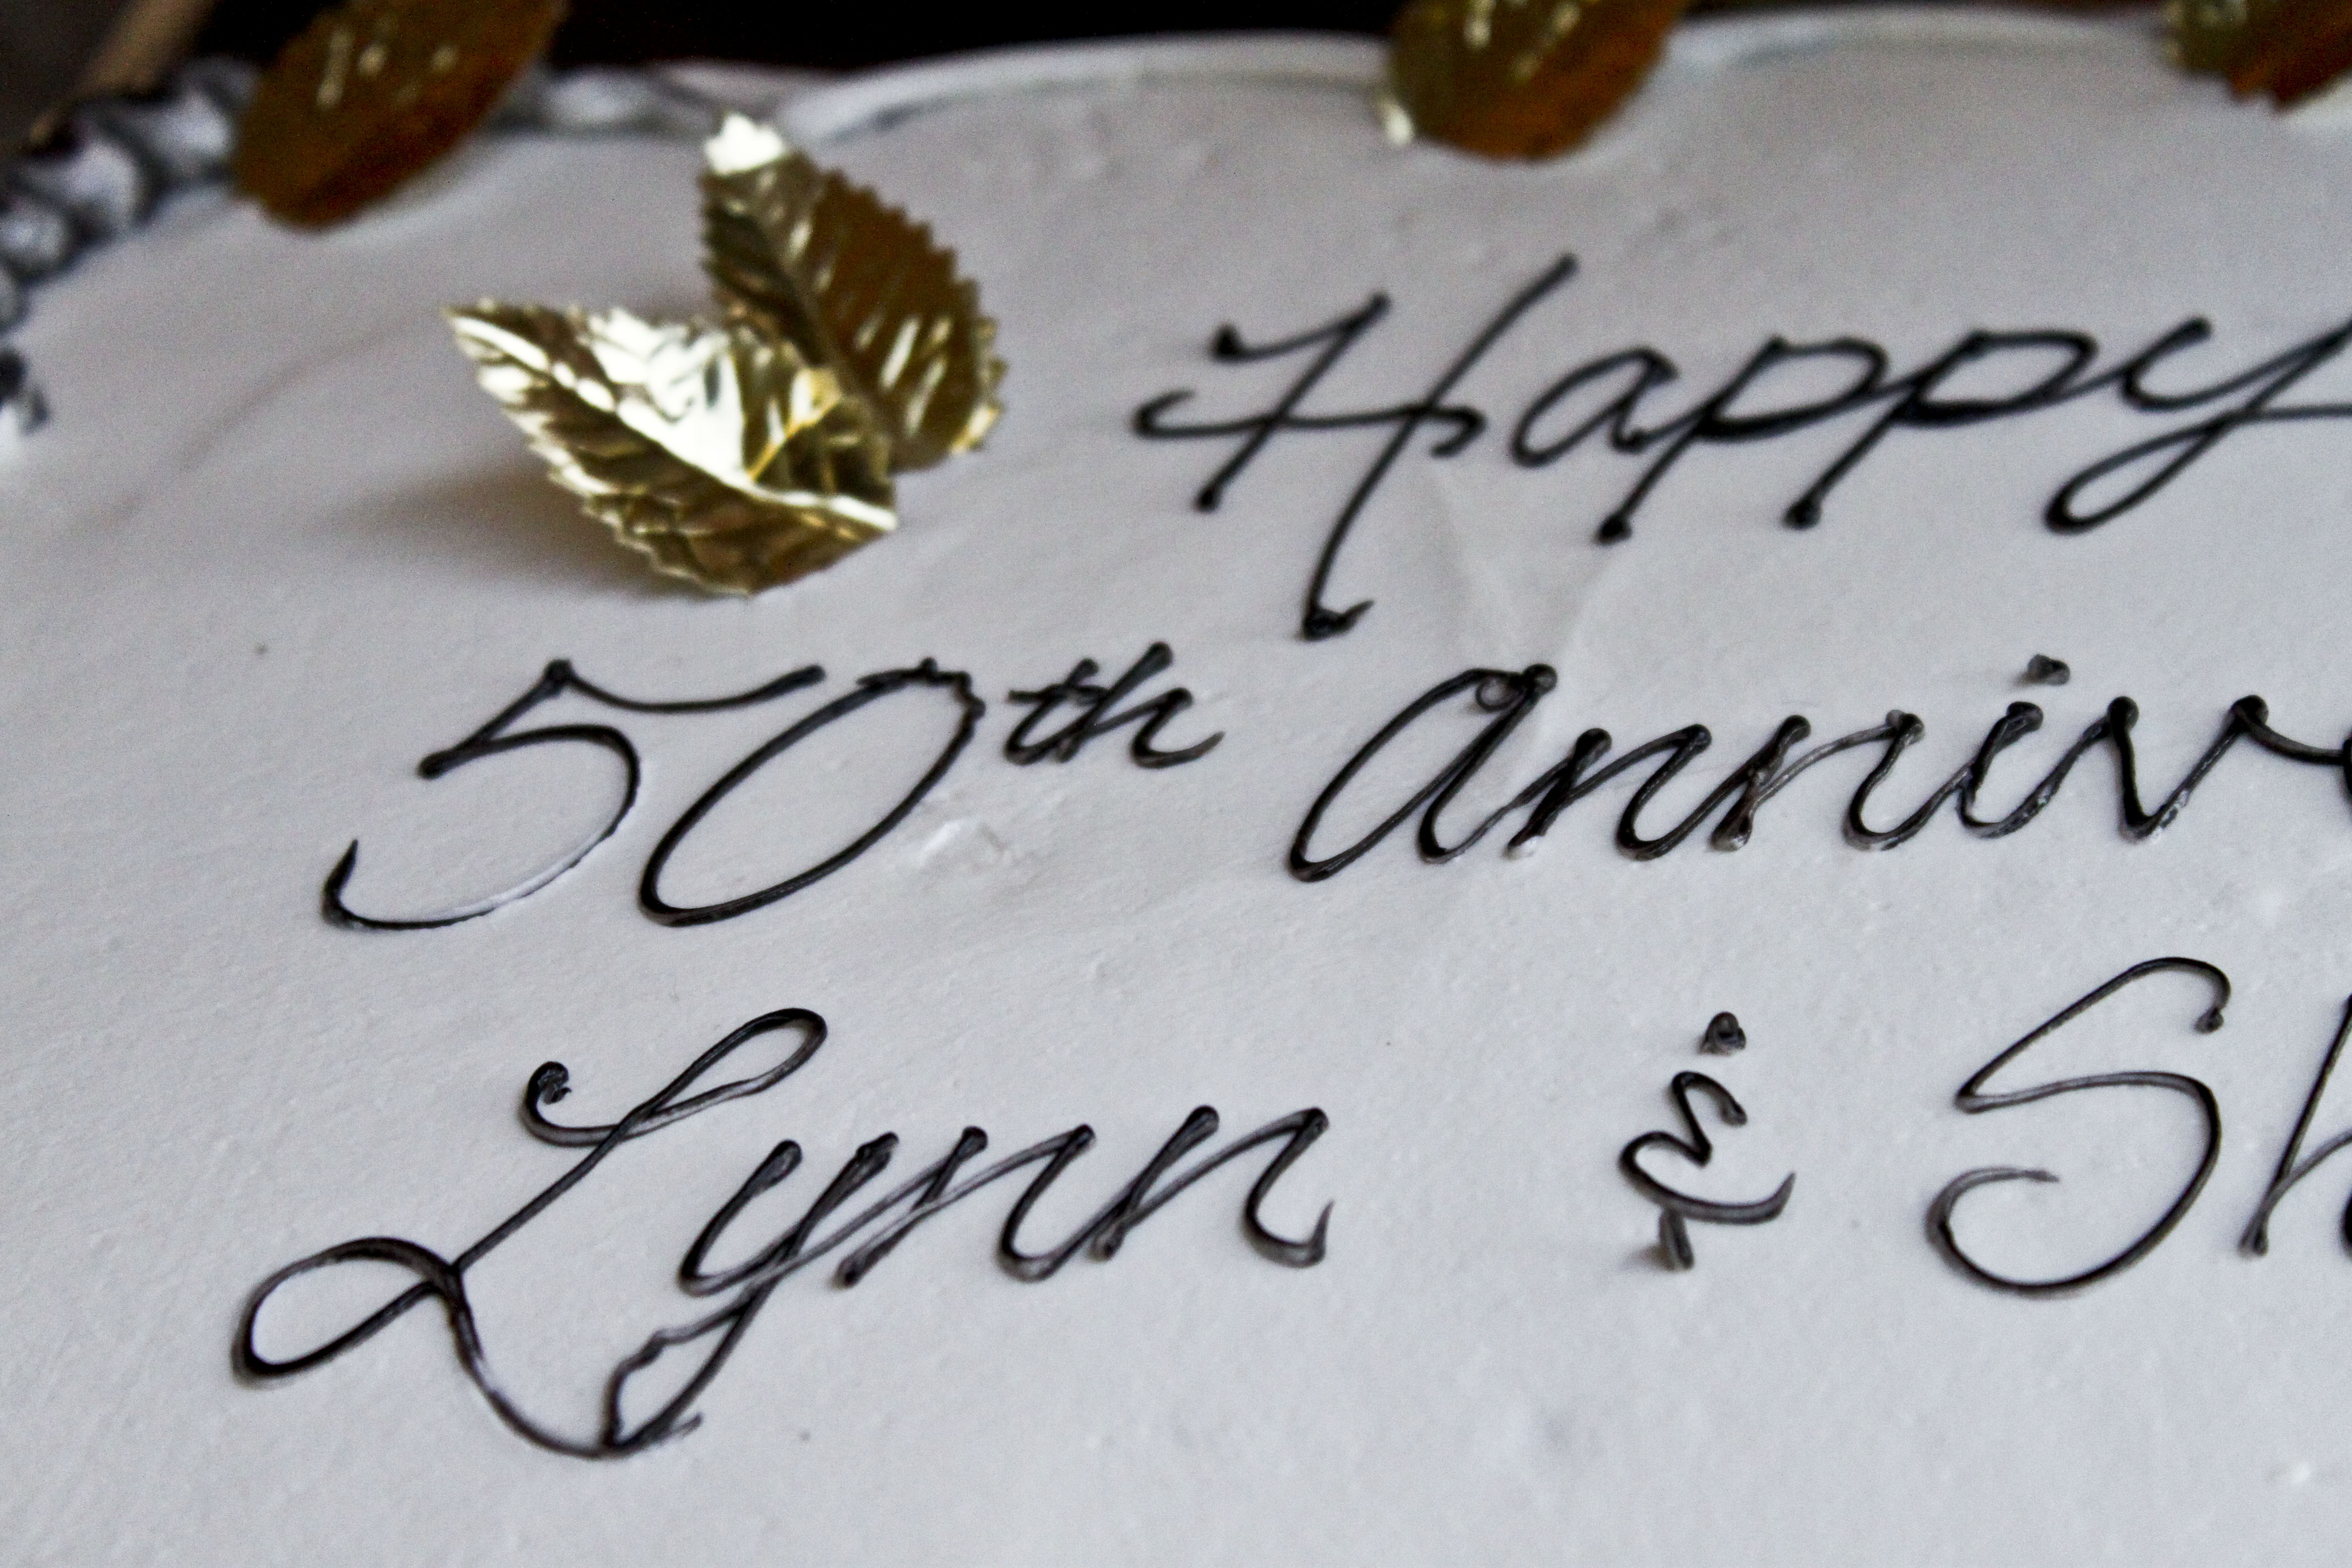 Happy
50th Anniv
Lynn & Sh